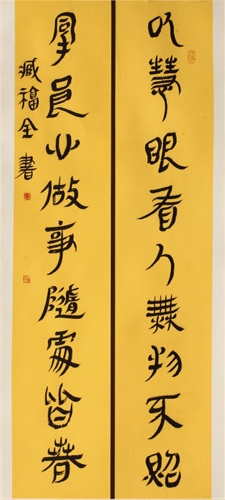 以慧眼看人無物不照
拿良心做事隨處皆春
臧福全 書